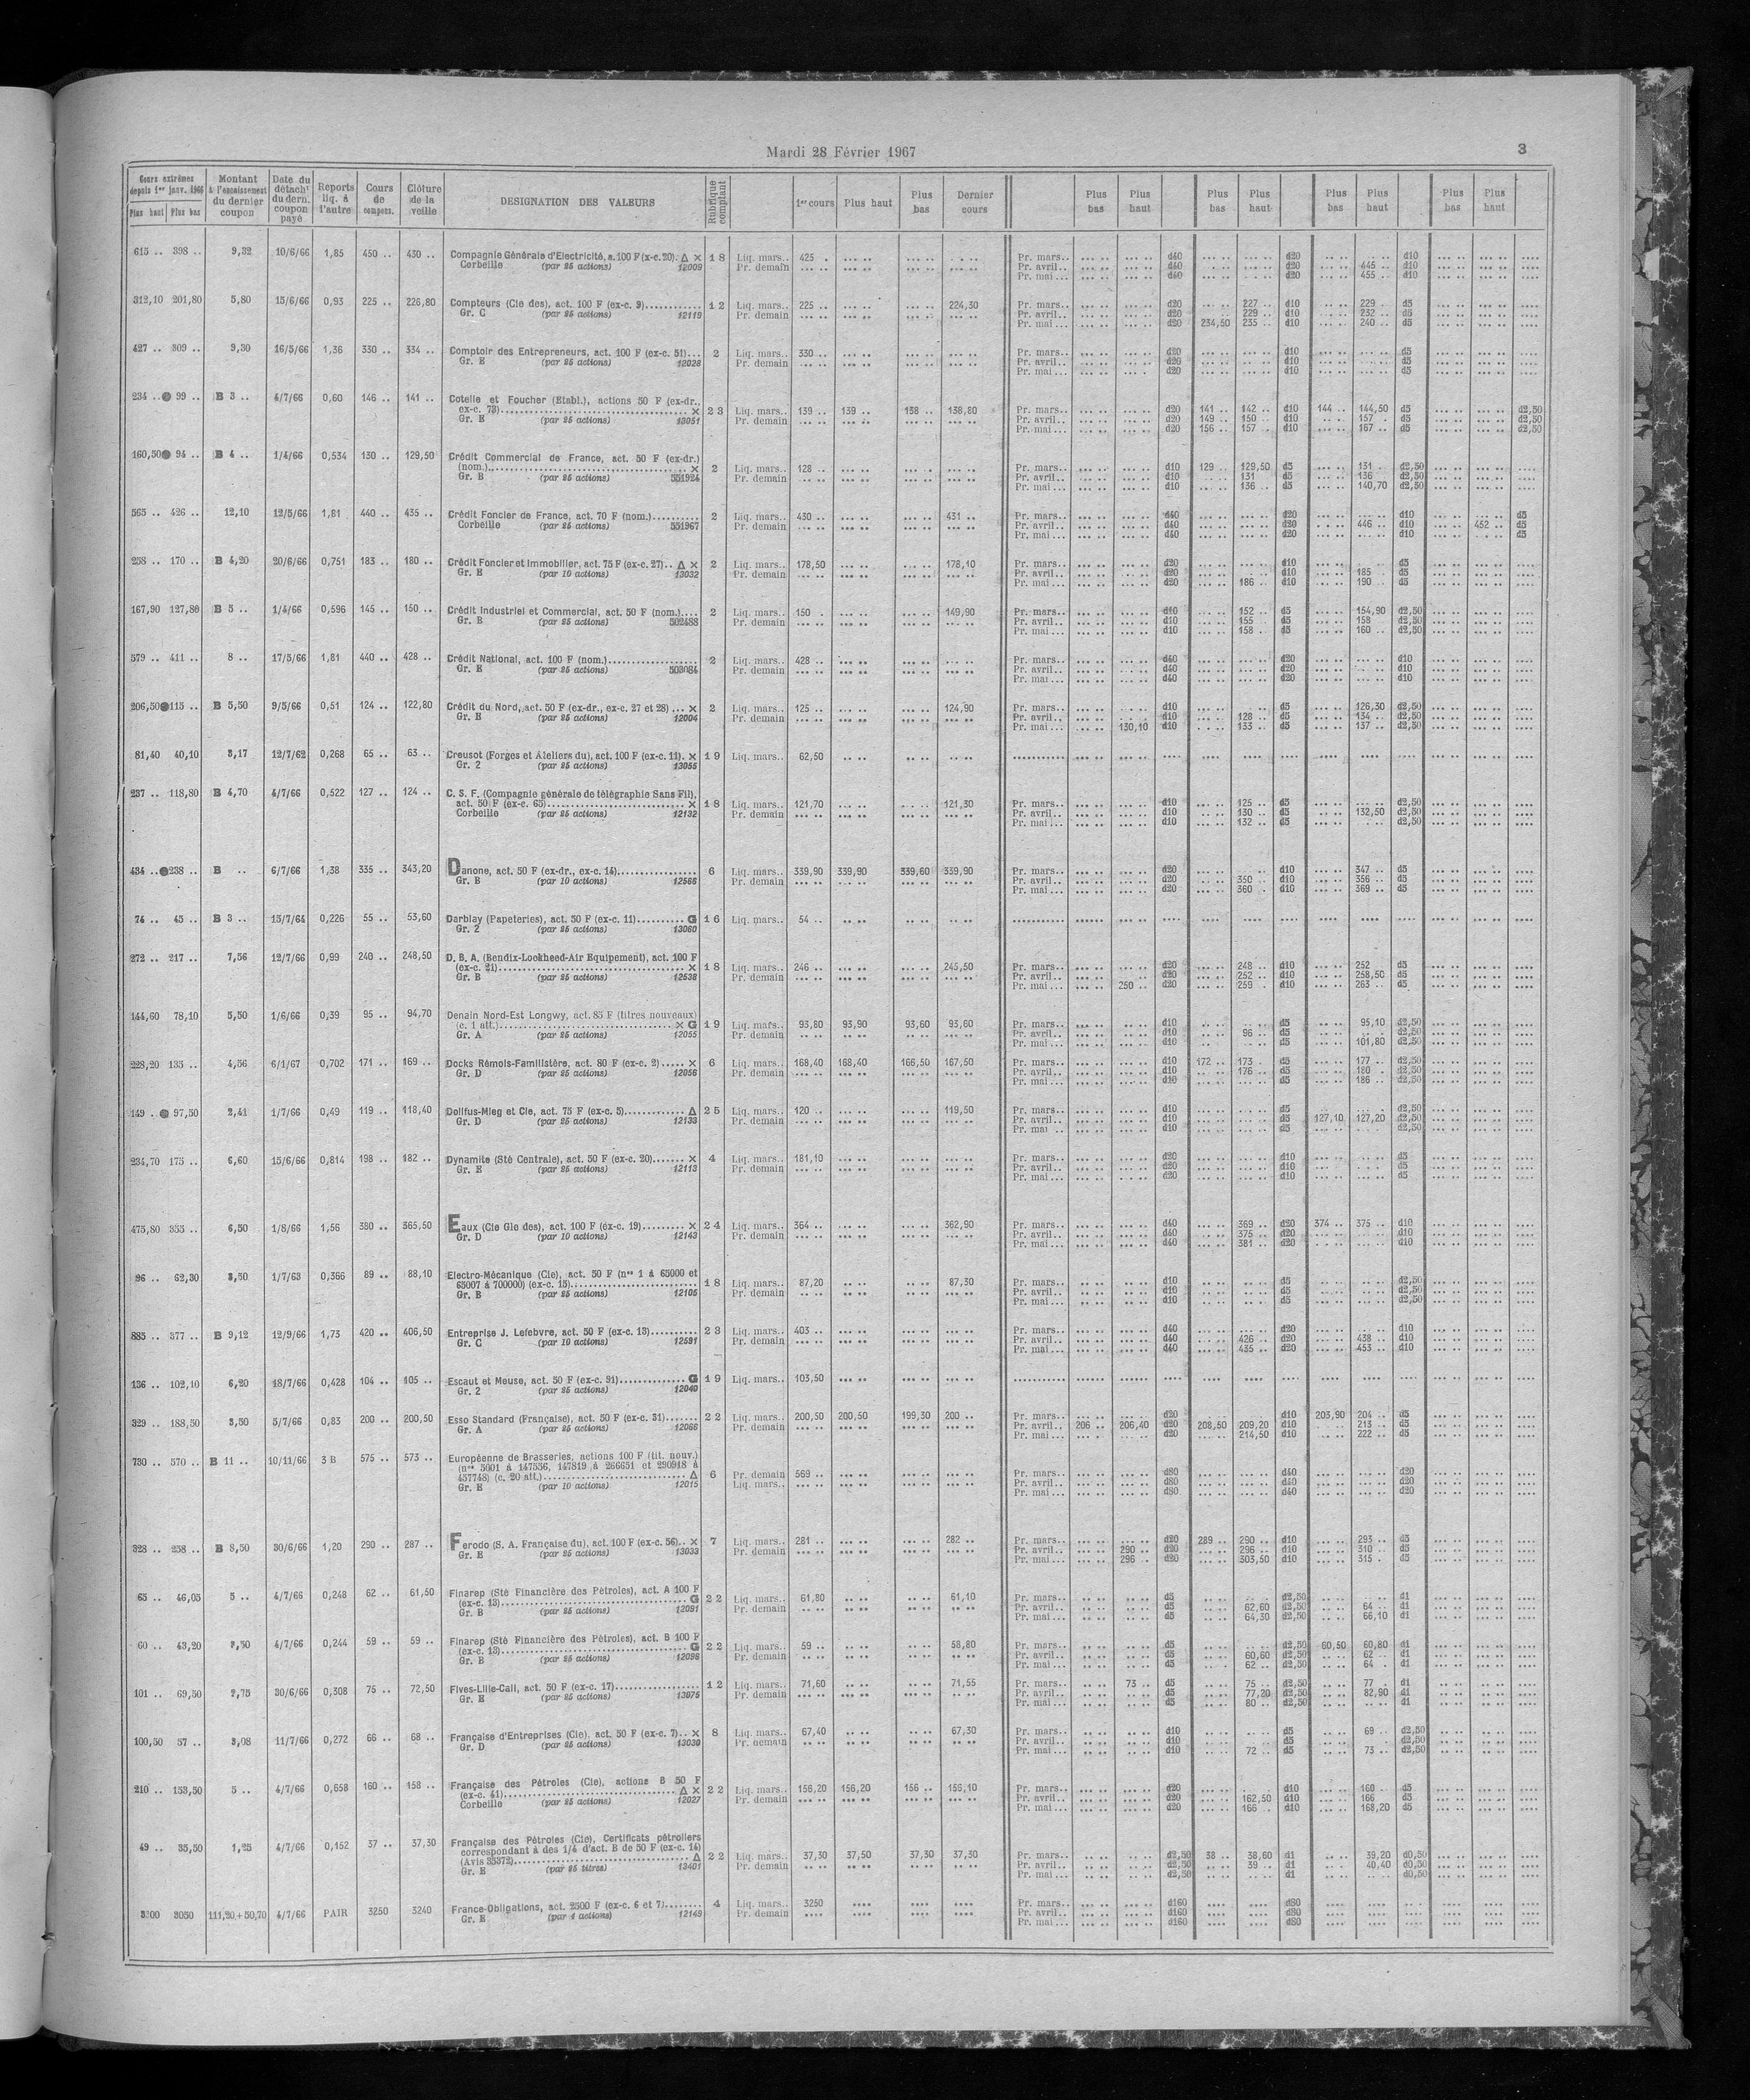 Mardi 28 Février 1967
3
Cours extrêmes depuis 1er janv. 1966
Plus haut Plus bas
Montant à l'encaissement du dernier coupon
Date du détacht du dern. coupon payé
Reports liq. à l'autre
Cours de compens.
Clôture de la veille
DESIGNATION DES VALEURS
Rubrique comptant
1er cours Plus haut Plus bas Dernier cours
Plus bas Plus haut Plus bas Plus haut Plus bas Plus haut Plus bas Plus haut
615 .. 398 .. 9,32 10/6/66 1,85 450 .. 430 .. Compagnie Générale d'Electricité, a. 100 F (x-c. 20). Δ × 18 Liq. mars.. 425 . Pr. mars.. d40 d20 d10
Corbeille (par 25 actions) 12009 Pr. demain Pr. avril.. d40 d20 445 .. d10
Pr. mai... d40 d20 455 .. d10
312,10 201,80 5,80 15/6/66 0,93 225 .. 226,80 Compteurs (Cie des), act. 100 F (ex-c. 9) 12 Liq. mars.. 225 .. 224,30 Pr. mars.. d20 227 .. d10 229 . d5
Gr. C (par 25 actions) 12119 Pr. demain Pr. avril.. d20 229 .. d10 232 .. d5
Pr. mai... d20 234,50 235 .. d10 240 .. d5
427 .. 309 .. 9,30 16/5/66 1,36 330 .. 334 .. Comptoir des Entrepreneurs, act. 100 F (ex-c. 51)... 2 Liq. mars.. 330 .. Pr. mars.. d20 d10 d5
Gr. E (par 25 actions) 12028 Pr. demain Pr. avril.. d20 d10 d5
Pr. mai... d20 d10 d5
234 .. 99 .. B 3 .. 4/7/66 0,60 146 .. 141 .. Cotelle et Foucher (Etabl.), actions 50 F (ex-dr.,
ex-c. 73) × 23 Liq. mars.. 139 .. 139 .. 138 .. 138,80 Pr. mars.. d20 141 .. 142 .. d10 144 .. 144,50 d5 d2,50
Gr. E (par 25 actions) 13051 Pr. demain Pr. avril.. d20 149 .. 150 .. d10 157 .. d5 d2,50
Pr. mai... d20 156 .. 157 .. d10 167 .. d5 d2,50
160,50 94 .. B 4 .. 1/4/66 0,534 130 .. 129,50 Crédit Commercial de France, act. 50 F (ex-dr.)
(nom.) × 2 Liq. mars.. 128 .. Pr. mars.. d10 129 .. 129,50 d5 131 . d2,50
Gr. B (par 25 actions) 551924 Pr. demain Pr. avril.. d10 131 . d5 136 .. d2,50
Pr. mai... d10 136 .. d5 140,70 d2,50
565 .. 426 .. 12,10 12/5/66 1,81 440 .. 435 .. Crédit Foncier de France, act. 70 F (nom.) 2 Liq. mars.. 430 .. 431 .. Pr. mars.. d40 d20 d10 d5
Corbeille (par 25 actions) 551967 Pr. demain Pr. avril.. d40 d20 446 .. d10 452 .. d5
Pr. mai... d40 d20 d10 d5
258 .. 170 .. B 4,20 20/6/66 0,751 183 .. 180 .. Crédit Foncier et Immobilier, act. 75 F (ex-c. 27).. Δ × 2 Liq. mars.. 178,50 178,10 Pr. mars.. d20 d10 d5
Gr. E (par 10 actions) 13032 Pr. demain Pr. avril.. d20 d10 185 .. d5
Pr. mai... d20 186 .. d10 190 .. d5
167,90 127,80 B 5 .. 1/4/66 0,596 145 .. 150 .. Crédit Industriel et Commercial, act. 50 F (nom.).... 2 Liq. mars.. 150 . 149,90 Pr. mars.. d10 152 .. d5 154,90 d2,50
Gr. B (par 25 actions) 502488 Pr. demain Pr. avril.. d10 155 .. d5 158 .. d2,50
Pr. mai... d10 158 .. d5 160 .. d2,50
579 .. 411 .. 8 .. 17/5/66 1,81 440 .. 428 .. Crédit National, act. 100 F (nom.) 2 Liq. mars.. 428 .. Pr. mars.. d40 d20 d10
Gr. E (par 25 actions) 503084 Pr. demain Pr. avril.. d40 d20 d10
Pr. mai... d40 d20 d10
206,50 115 .. B 5,50 9/5/66 0,51 124 .. 122,80 Crédit du Nord, act. 50 F (ex-dr., ex-c. 27 et 28)... × 2 Liq. mars.. 125 .. 124,90 Pr. mars.. d10 d5 126,30 d2,50
Gr. E (par 25 actions) 12004 Pr. demain Pr. avril.. d10 128 .. d5 134 .. d2,50
Pr. mai... 130,10 d10 133 .. d5 137 .. d2,50
81,40 40,10 3,17 12/7/62 0,268 65 .. 63 .. Creusot (Forges et Ateliers du), act. 100 F (ex-c. 11). × 19 Liq. mars.. 62,50
Gr. 2 (par 25 actions) 13055
237 .. 118,80 B 4,70 4/7/66 0,522 127 .. 124 .. C. S. F. (Compagnie générale de télégraphie Sans Fil),
act. 50 F (ex-c. 65) × 18 Liq. mars.. 121,70 121,30 Pr. mars.. d10 125 .. d5 d2,50
Corbeille (par 25 actions) 12132 Pr. demain Pr. avril.. d10 130 .. d5 132,50 d2,50
Pr. mai... d10 132 .. d5 d2,50
434 .. 238 .. B .. 6/7/66 1,38 335 .. 343,20 Danone, act. 50 F (ex-dr., ex-c. 14) 6 Liq. mars.. 339,90 339,90 339,60 339,90 Pr. mars.. d20 d10 347 .. d5
Gr. B (par 10 actions) 12566 Pr. demain Pr. avril.. d20 350 .. d10 356 .. d5
Pr. mai... d20 360 .. d10 369 .. d5
74 .. 45 .. B 3 .. 15/7/64 0,226 55 .. 53,60 Darblay (Papeteries), act. 50 F (ex-c. 11) G 16 Liq. mars.. 54 ..
Gr. 2 (par 25 actions) 13060
272 .. 217 .. 7,56 12/7/66 0,99 240 .. 248,50 D. B. A. (Bendix-Lockheed-Air Equipement), act. 100 F
(ex-c. 21) × 18 Liq. mars.. 246 .. 245,50 Pr. mars.. d20 248 .. d10 252 .. d5
Gr. B (par 25 actions) 12538 Pr. demain Pr. avril.. d20 252 .. d10 258,50 d5
Pr. mai... 250 .. d20 259 .. d10 263 .. d5
144,60 78,10 5,50 1/6/66 0,39 95 .. 94,70 Denain Nord-Est Longwy, act. 85 F (titres nouveaux)
(c. 1 att.) × G 19 Liq. mars.. 93,80 93,90 93,60 93,60 Pr. mars.. d10 d5 95,10 d2,50
Gr. A (par 25 actions) 12055 Pr. demain Pr. avril.. d10 96 .. d5 d2,50
Pr. mai... d10 d5 101,80 d2,50
228,20 135 .. 4,56 6/1/67 0,702 171 .. 169 .. Docks Rémois-Familistère, act. 80 F (ex-c. 2)..... × 6 Liq. mars.. 168,40 168,40 166,50 167,50 Pr. mars.. d10 172 .. 173 .. d5 177 .. d2,50
Gr. D (par 25 actions) 12056 Pr. demain Pr. avril.. d10 176 .. d5 180 . d2,50
Pr. mai... d10 d5 186 .. d2,50
149 . 97,50 2,41 1/7/66 0,49 119 .. 118,40 Dollfus-Mieg et Cie, act. 75 F (ex-c. 5) Δ 25 Liq. mars.. 120 .. 119,50 Pr. mars.. d10 d5 d2,50
Gr. D (par 25 actions) 12133 Pr. demain Pr. avril.. d10 d5 127,10 127,20 d2,50
Pr. mai .. d10 d5 d2,50
234,70 175 .. 6,60 15/6/66 0,814 198 .. 182 .. Dynamite (Sté Centrale), act. 50 F (ex-c. 20)....... × 4 Liq. mars.. 181,10 Pr. mars.. d20 d10 d5
Gr. E (par 25 actions) 12113 Pr. demain Pr. avril.. d20 d10 d5
Pr. mai... d20 d10 d5
475,80 355 .. 6,50 1/8/66 1,56 380 .. 365,50 Eaux (Cie Gle des), act. 100 F (ex-c. 19)......... × 24 Liq. mars.. 364 .. 362,90 Pr. mars.. d40 369 .. d20 374 .. 375 .. d10
Gr. D (par 10 actions) 12143 Pr. demain Pr. avril.. d40 375 .. d20 d10
Pr. mai... d40 381 .. d20 d10
96 .. 62,30 3,50 1/7/63 0,366 89 .. 88,10 Electro-Mécanique (Cie), act. 50 F (nos 1 à 65000 et
65007 à 700000) (ex-c. 15) 18 Liq. mars.. 87,20 87,30 Pr. mars.. d10 d5 d2,50
Gr. B (par 25 actions) 12105 Pr. demain Pr. avril.. d10 d5 d2,50
Pr. mai... d10 d5 d2,50
885 .. 377 .. B 9,12 12/9/66 1,73 420 .. 406,50 Entreprise J. Lefebvre, act. 50 F (ex-c. 13) 23 Liq. mars.. 403 .. Pr. mars.. d40 d20 d10
Gr. C (par 10 actions) 12591 Pr. demain Pr. avril.. d40 426 .. d20 438 .. d10
Pr. mai... d40 435 .. d20 453 .. d10
136 .. 102,10 6,20 18/7/66 0,428 104 .. 105 .. Escaut et Meuse, act. 50 F (ex-c. 91) G 19 Liq. mars.. 103,50
Gr. 2 (par 25 actions) 12040
329 .. 188,50 3,50 5/7/66 0,83 200 .. 200,50 Esso Standard (Française), act. 50 F (ex-c. 31)....... 22 Liq. mars.. 200,50 200,50 199,30 200 .. Pr. mars.. d20 d10 203,90 204 .. d5
Gr. A (par 25 actions) 12066 Pr. demain Pr. avril.. 206 .. 206,40 d20 208,50 209,20 d10 213 .. d5
Pr. mai... d20 214,50 d10 222 .. d5
730 .. 570 .. B 11 .. 10/11/66 3 B 575 .. 573 .. Européenne de Brasseries, actions 100 F (tit. nouv.)
(nos 5001 à 147556, 147819 à 266651 et 290918 à
457748) (c. 20 att.) Δ 6 Pr. demain 569 .. Pr. mars.. d80 d40 d20
Gr. E (par 10 actions) 12015 Liq. mars.. Pr. avril.. d80 d40 d20
Pr. mai... d80 d40 d20
328 .. 258 .. B 8,50 30/6/66 1,20 290 .. 287 .. Ferodo (S. A. Française du), act. 100 F (ex-c. 56).. × 7 Liq. mars.. 281 .. 282 .. Pr. mars.. d20 289 .. 290 .. d10 293 .. d5
Gr. E (par 25 actions) 13033 Pr. demain Pr. avril.. 290 .. d20 296 .. d10 310 .. d5
Pr. mai... 296 .. d20 303,50 d10 315 . d5
65 .. 46,05 5 .. 4/7/66 0,248 62 .. 61,50 Finarep (Sté Financière des Pétroles), act. A 100 F
(ex-c. 13) G 22 Liq. mars.. 61,80 61,10 Pr. mars.. d5 d2,50 d1
Gr. B (par 25 actions) 12091 Pr. demain Pr. avril.. d5 62,60 d2,50 64 .. d1
Pr. mai... d5 64,30 d2,50 66,10 d1
60 .. 43,20 3,50 4/7/66 0,244 59 .. 59 .. Finarep (Sté Financière des Pétroles), act. B 100 F
(ex-c. 13) G 22 Liq. mars.. 59 .. 58,80 Pr. mars.. d5 d2,50 60,50 60,80 d1
Gr. B (par 25 actions) 12098 Pr. demain Pr. avril.. d5 60,60 d2,50 62 .. d1
Pr. mai... d5 62 .. d2,50 64 . d1
101 .. 69,50 2,75 30/6/66 0,308 75 .. 72,50 Fives-Lille-Cail, act. 50 F (ex-c. 17) 12 Liq. mars.. 71,60 71,55 Pr. mars.. 73 .. d5 75 .. d2,50 77 .. d1
Gr. E (par 25 actions) 13075 Pr. demain Pr. avril.. d5 77,20 d2,50 82,90 d1
Pr. mai... d5 80 .. d2,50 d1
100,50 57 .. 3,08 11/7/66 0,272 66 .. 68 .. Française d'Entreprises (Cie), act. 50 F (ex-c. 7).. × 8 Liq. mars.. 67,40 67,30 Pr. mars.. d10 d5 69 .. d2,50
Gr. D (par 25 actions) 13030 Pr. demain Pr. avril.. d10 d5 d2,50
Pr. mai... d10 72 .. d5 73 .. d2,50
210 .. 153,50 5 .. 4/7/66 0,658 160 .. 158 .. Française des Pétroles (Cie), actions B 50 F
(ex-c. 41) Δ × 22 Liq. mars.. 156,20 156,20 156 .. 156,10 Pr. mars.. d20 d10 160 .. d5
Corbeille (par 25 actions) 12027 Pr. demain Pr. avril.. d20 162,50 d10 166 .. d5
Pr. mai... d20 166 . d10 168,20 d5
49 .. 35,50 1,25 4/7/66 0,152 37 .. 37,30 Française des Pétroles (Cie), Certificats pétroliers
correspondant à des 1/4 d'act. B de 50 F (ex-c. 14)
(Avis 35372) Δ 22 Liq. mars.. 37,30 37,50 37,30 37,30 Pr. mars.. d2,50 38 .. 38,60 d1 39,20 d0,50
Gr. E (par 25 titres) 13401 Pr. demain Pr. avril.. d2,50 39 .. d1 40,40 d0,50
Pr. mai... d2,50 d1 d0,50
3050 111,20+50,70 4/7/66 PAIR 3250 3240 France-Obligations, act. 2500 F (ex-c. 6 et 7)........ 4 Liq. mars.. 3250 Pr. mars.. d160 d80
Gr. E (par 1 actions) 12149 Pr. demain Pr. avril.. d160 d80
Pr. mai... d160 d80